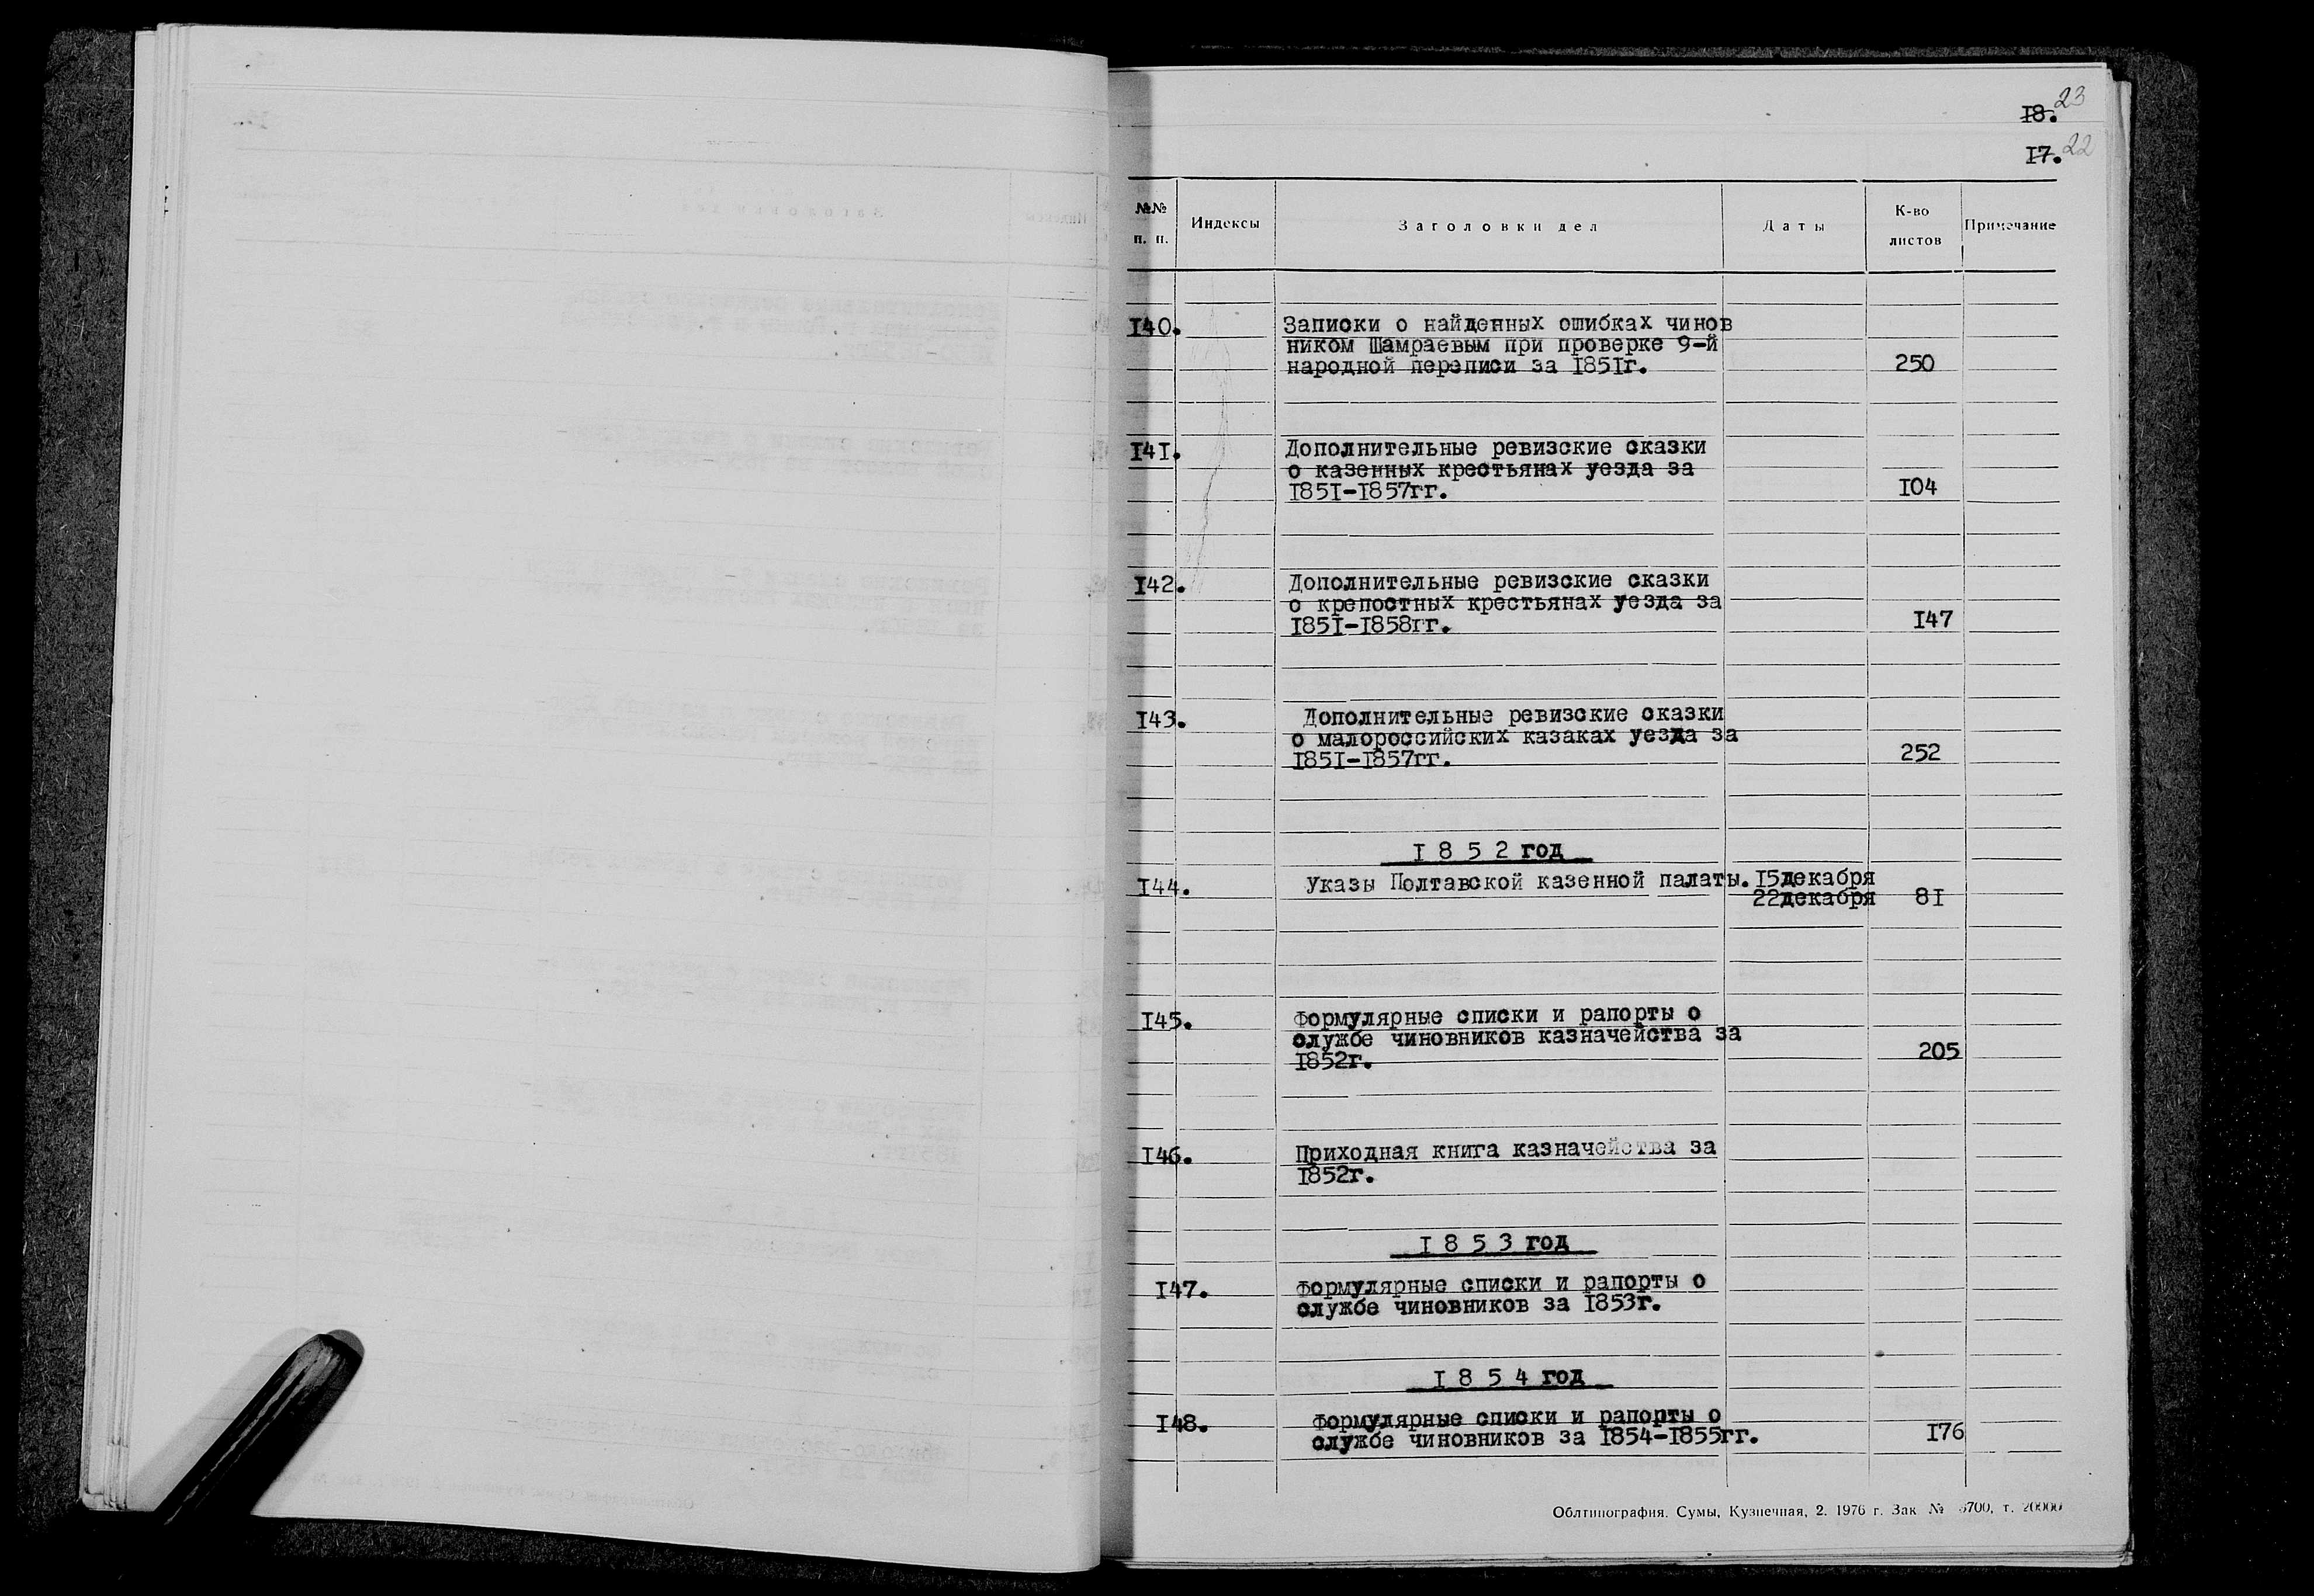 23
18.
22
17.
№№ п. п.
Индексы
Заголовки дел
Даты
К-во листов
Примечание
140.
Записки о найденных ошибках чинов
ником Шамраевым при проверке 9-й
народной переписи за 1851г.
250
141.
Дополнительные ревизские сказки
о казенных крестьянах уезда за
1851-1857гг.
104
142.
Дополнительные ревизские сказки
о крепостных крестьянах уезда за
1851-1858гг.
147
143.
Дополнительные ревизские сказки
о малороссийских казаках уезда за
1851-1857гг.
252
1852 год
144.
Указы Полтавской казенной палаты. 15декабря
22декабря 81
145.
Формулярные списки и рапорты о
службе чиновников казначейства за
1852г.
205
146.
Приходная книга казначейства за
1852г.
1853 год
147.
Формулярные списки и рапорты о
службе чиновников за 1853г.
1854 год
148.
Формулярные списки и рапорты о
службе чиновников за 1854-1855гг.
176
Облтипография. Сумы, Кузнечная, 2. 1976 г. Зак № 5700, т. 20000